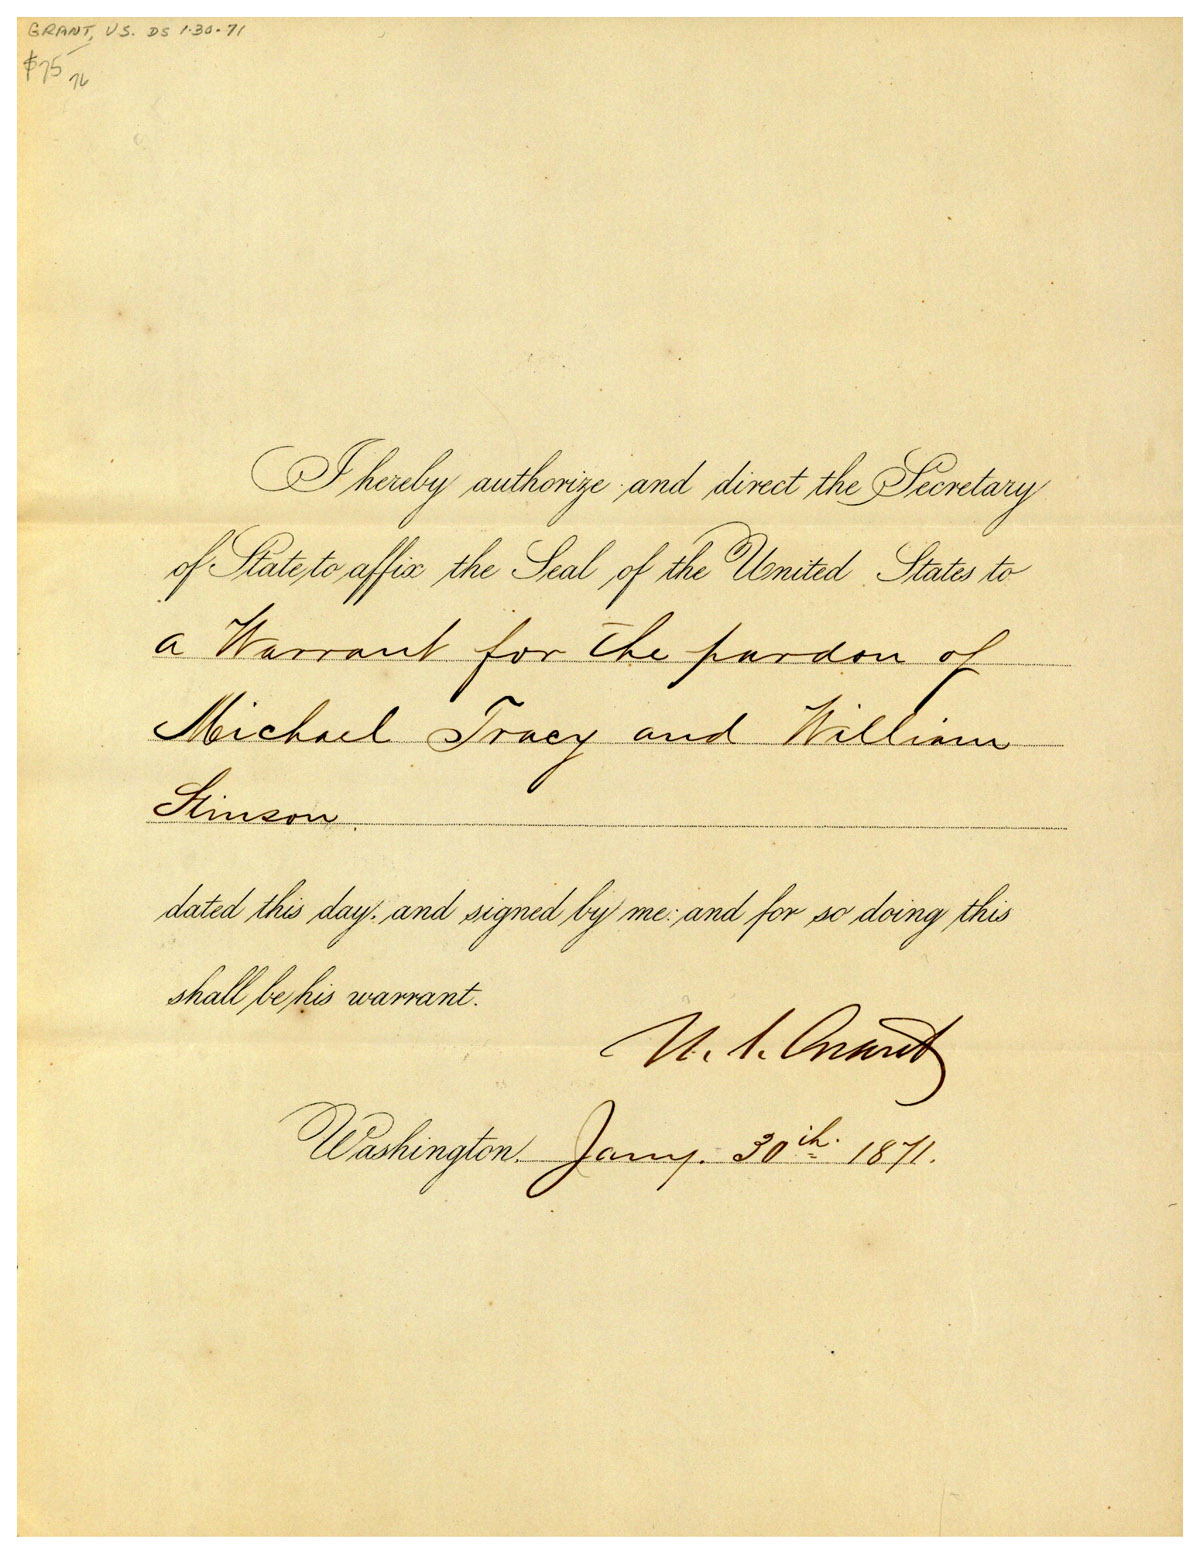 GRANT, US. DS 1·30·71
$75
76
I hereby authorize and direct the Secretary
of State to affix the Seal of the United States to
a Warrant for the pardon of
Michael Tracy and William
Stinson.
dated this day, and signed by me: and for so doing this
shall be his warrant.
U. S. Grant
Washington, Jany. 30th. 1871.